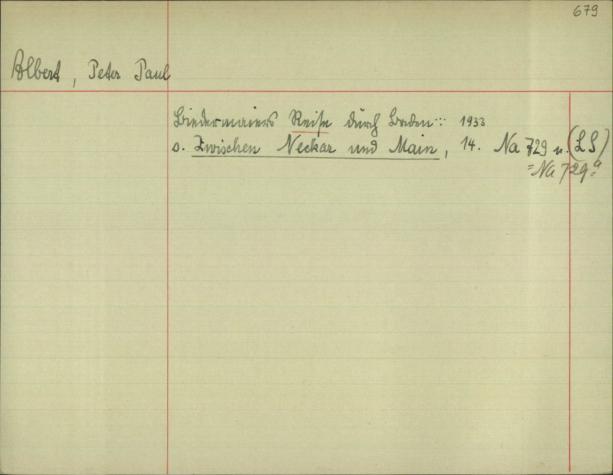 679
Albert, Peter Paul
Biedermaiers Reise durch Baden: 1933
s. Zwischen Neckar und Main, 14. Na 729 u. (LS)
=Na 729a